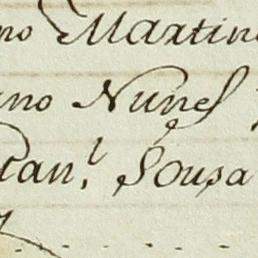 no Martin
no Nunes
can.l Sousa